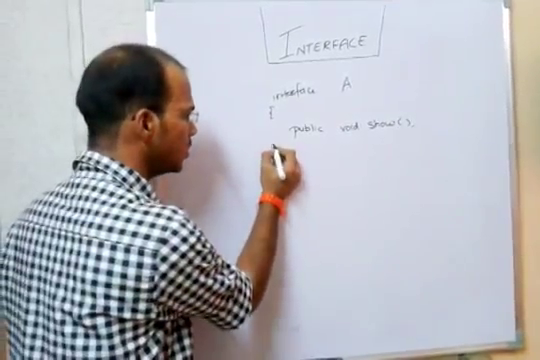 INTERFACE
interface A
{
public void show();